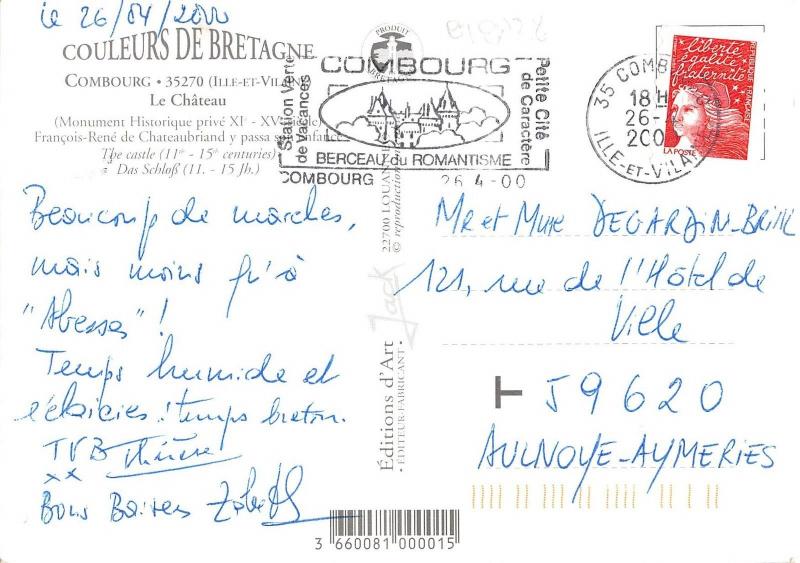 le 26/04/2000
COULEURS DE BRETAGNE
COMBOURG • 35270 (ILLE-ET-VILAINE)
Le Château
(Monument Historique privé XIe - XVe siècle)
François-René de Chateaubriand y passa son enfance
The castle (11th - 15th centuries)
Das Schloß (11. - 15 Jh.)
PRODUIT
COMBOURG
Station Verte
de Vacances
Petite Cité
de Caractère
BERCEAU du ROMANTISME
COMBOURG 26 4 - 00
35 COMB
18H
26-
200
ILLE-ET-VILAINE
liberté
égalité
fraternité
REPUBLIQUE FRANÇAISE
LA POSTE
Beaucoup de marches,
mais moins qu'à
"Abesses"!
Temps humide et
éclaircies : temps breton.
TVB Thérèse
xx
Bons Baisers
22700 LOUAN
© reproduction
Jack
Editions d'Art
• EDITEUR-FABRICANT •
Mr et Mme DEGARDIN-BRILL
121, rue de l'Hôtel de
Ville
T 59620
AULNOYE-AYMERIES
3 660081 000015